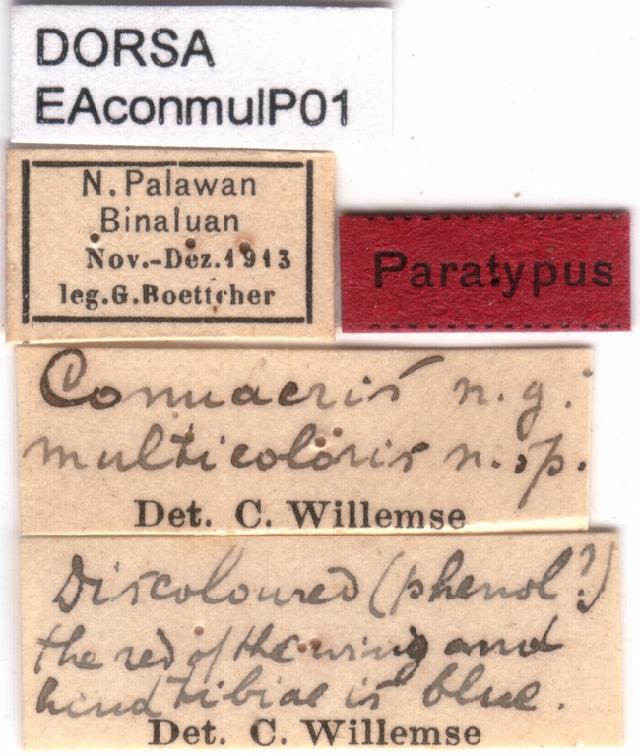 DORSA
EAconmulP01
N. Palawan
Binaluan
Nov.-Dez.1913
leg.G.Roettcher
Paratypus
Connacris n.g.
multicoloris n.sp.
Det. C. Willemse
Discoloured (phenol?)
the red of the wing and
hind tibiae is blue.
Det. C. Willemse